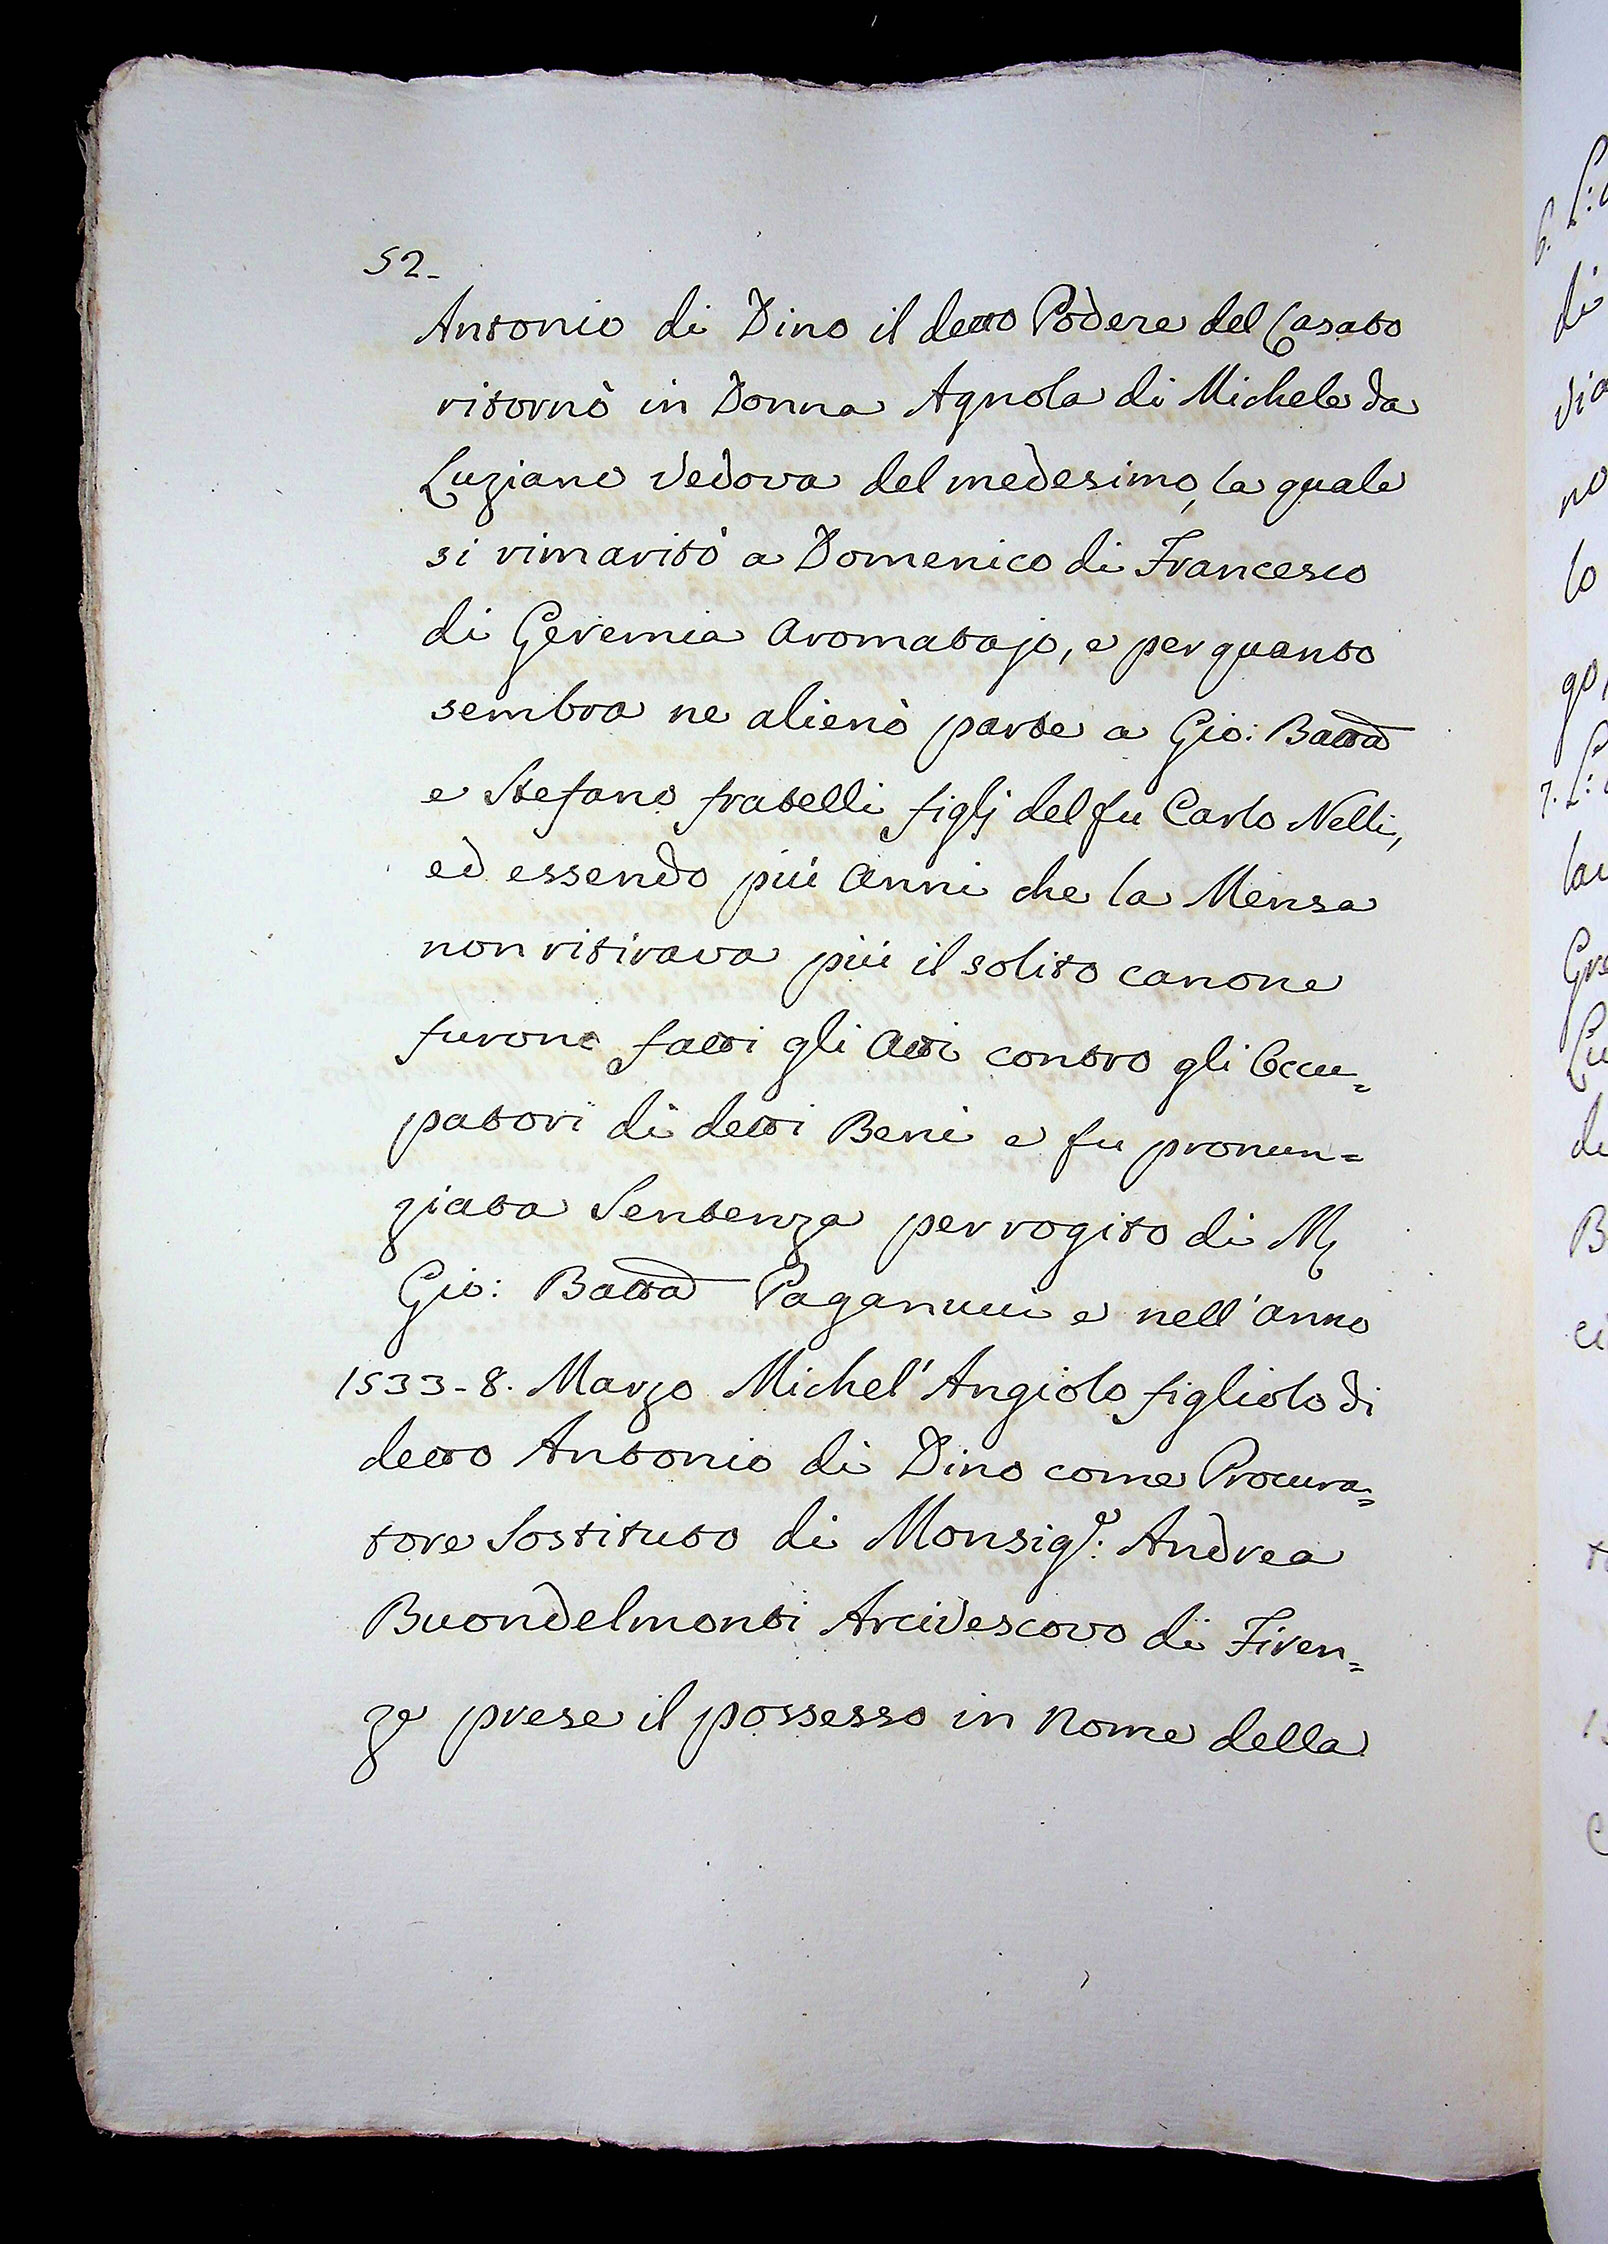 52-
Antonio di Dino il detto Podere del Casato
ritornò in Donna Agnola di Michele da
Luziano Vedova del medesimo, la quale
si rimaritò a Domenico di Francesco
di Geremia Aromatajo, e per quanto
sembra ne alienò parte a Gio: Batta
e Stefano fratelli figlj del fu Carlo Nelli,
ed essendo più Anni che la Mensa
non ritirava più il solito canone
furono fatti gli Atti contro gli Occu=
patori di detti Beni e fu pronun=
ziata Sentenza per rogito di
Gio: Batta Paganucci e nell'anno
1533-8. Marzo Michel'Angiolo figliolo di
detto Antonio di Dino come Procura=
tore Sostituto di Monsigr: Andrea
Buondelmonti Arcivescovo di Firen=
ze prese il possesso in Nome della